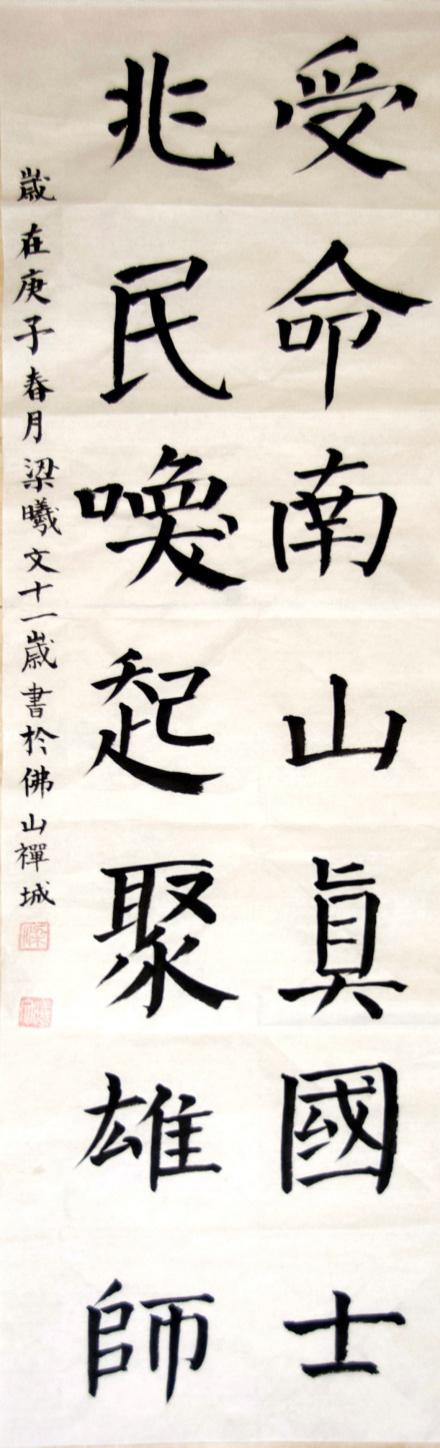 受命南山真國士
兆民喚起聚雄師
歲在庚子春月梁曦文十一歲書於佛山禪城